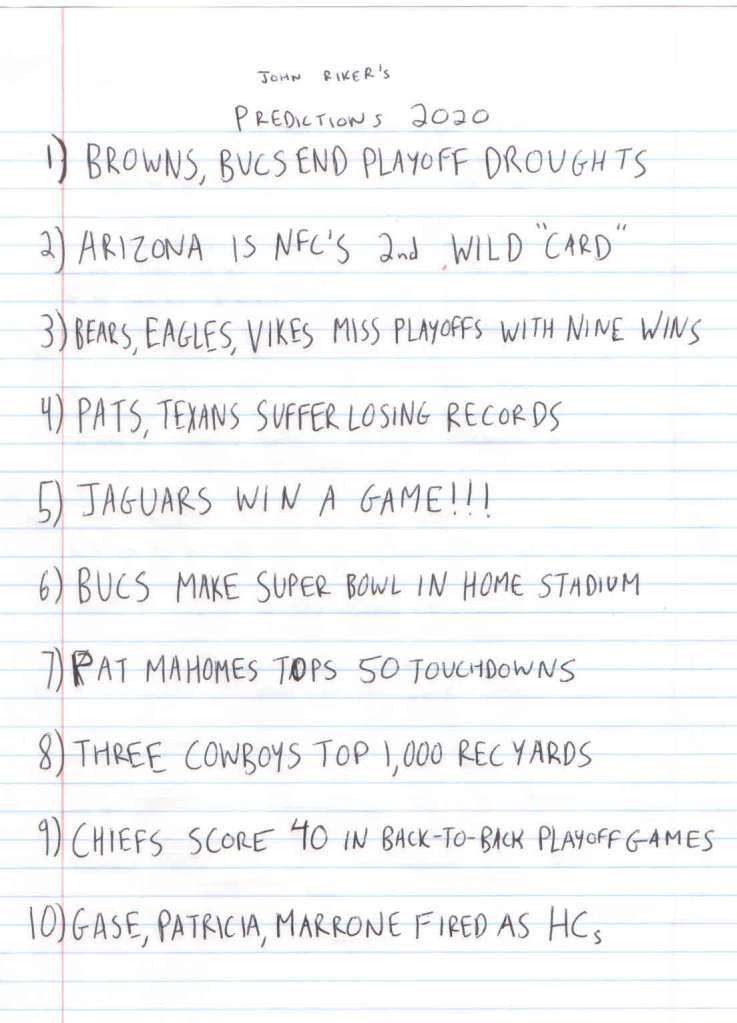 JOHN RIKER'S
PREDICTIONS 2020
1) BROWNS, BUCS END PLAYOFF DROUGHTS
2) ARIZONA IS NFC'S 2nd WILD "CARD"
3) BEARS, EAGLES, VIKES MISS PLAYOFFS WITH NINE WINS
4) PATS, TEXANS SUFFER LOSING RECORDS
5) JAGUARS WIN A GAME!!!
6) BUCS MAKE SUPER BOWL IN HOME STADIUM
7) PAT MAHOMES TOPS 50 TOUCHDOWNS
8) THREE COWBOYS TOP 1,000 REC YARDS
9) CHIEFS SCORE 40 IN BACK-TO-BACK PLAYOFF GAMES
10) GASE, PATRICIA, MARRONE FIRED AS HCs